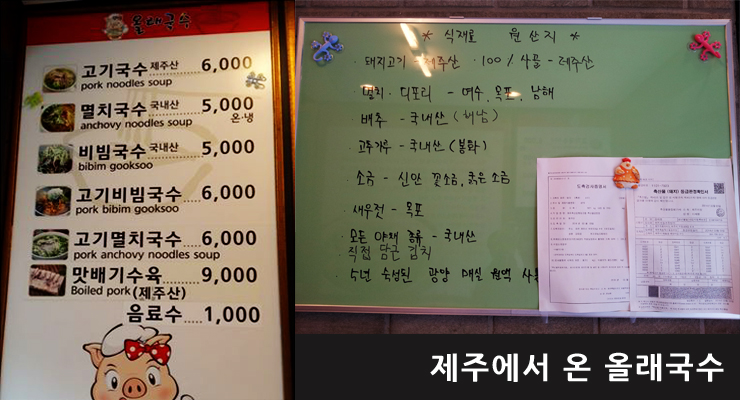 올래국수
고기국수 제주산 6,000
pork noodles soup
멸치국수 국내산 5,000
anchovy noodles soup 온·냉
비빔국수 국내산 5,000
bibim gooksoo
고기비빔국수 6,000
pork bibim gooksoo
고기멸치국수 6,000
pork anchovy noodles soup
맛배기수육 9,000
Boiled pork (제주산)
음료수 ..... 1,000
* 식재료 원산지 *
· 돼지고기 - 제주산 · 100% 사골 - 제주산
· 멸치·디포리 - 여수, 목포, 남해
· 배추 - 국내산 (해남)
· 고추가루 - 국내산 (봉화)
· 소금 - 신안 깔소금, 굵은소금
· 새우젓 - 목포
· 모든 야채 종류 - 국내산
직접 담근 김치
· 5년 숙성된 광양 매실 원액
제주에서 온 올래국수